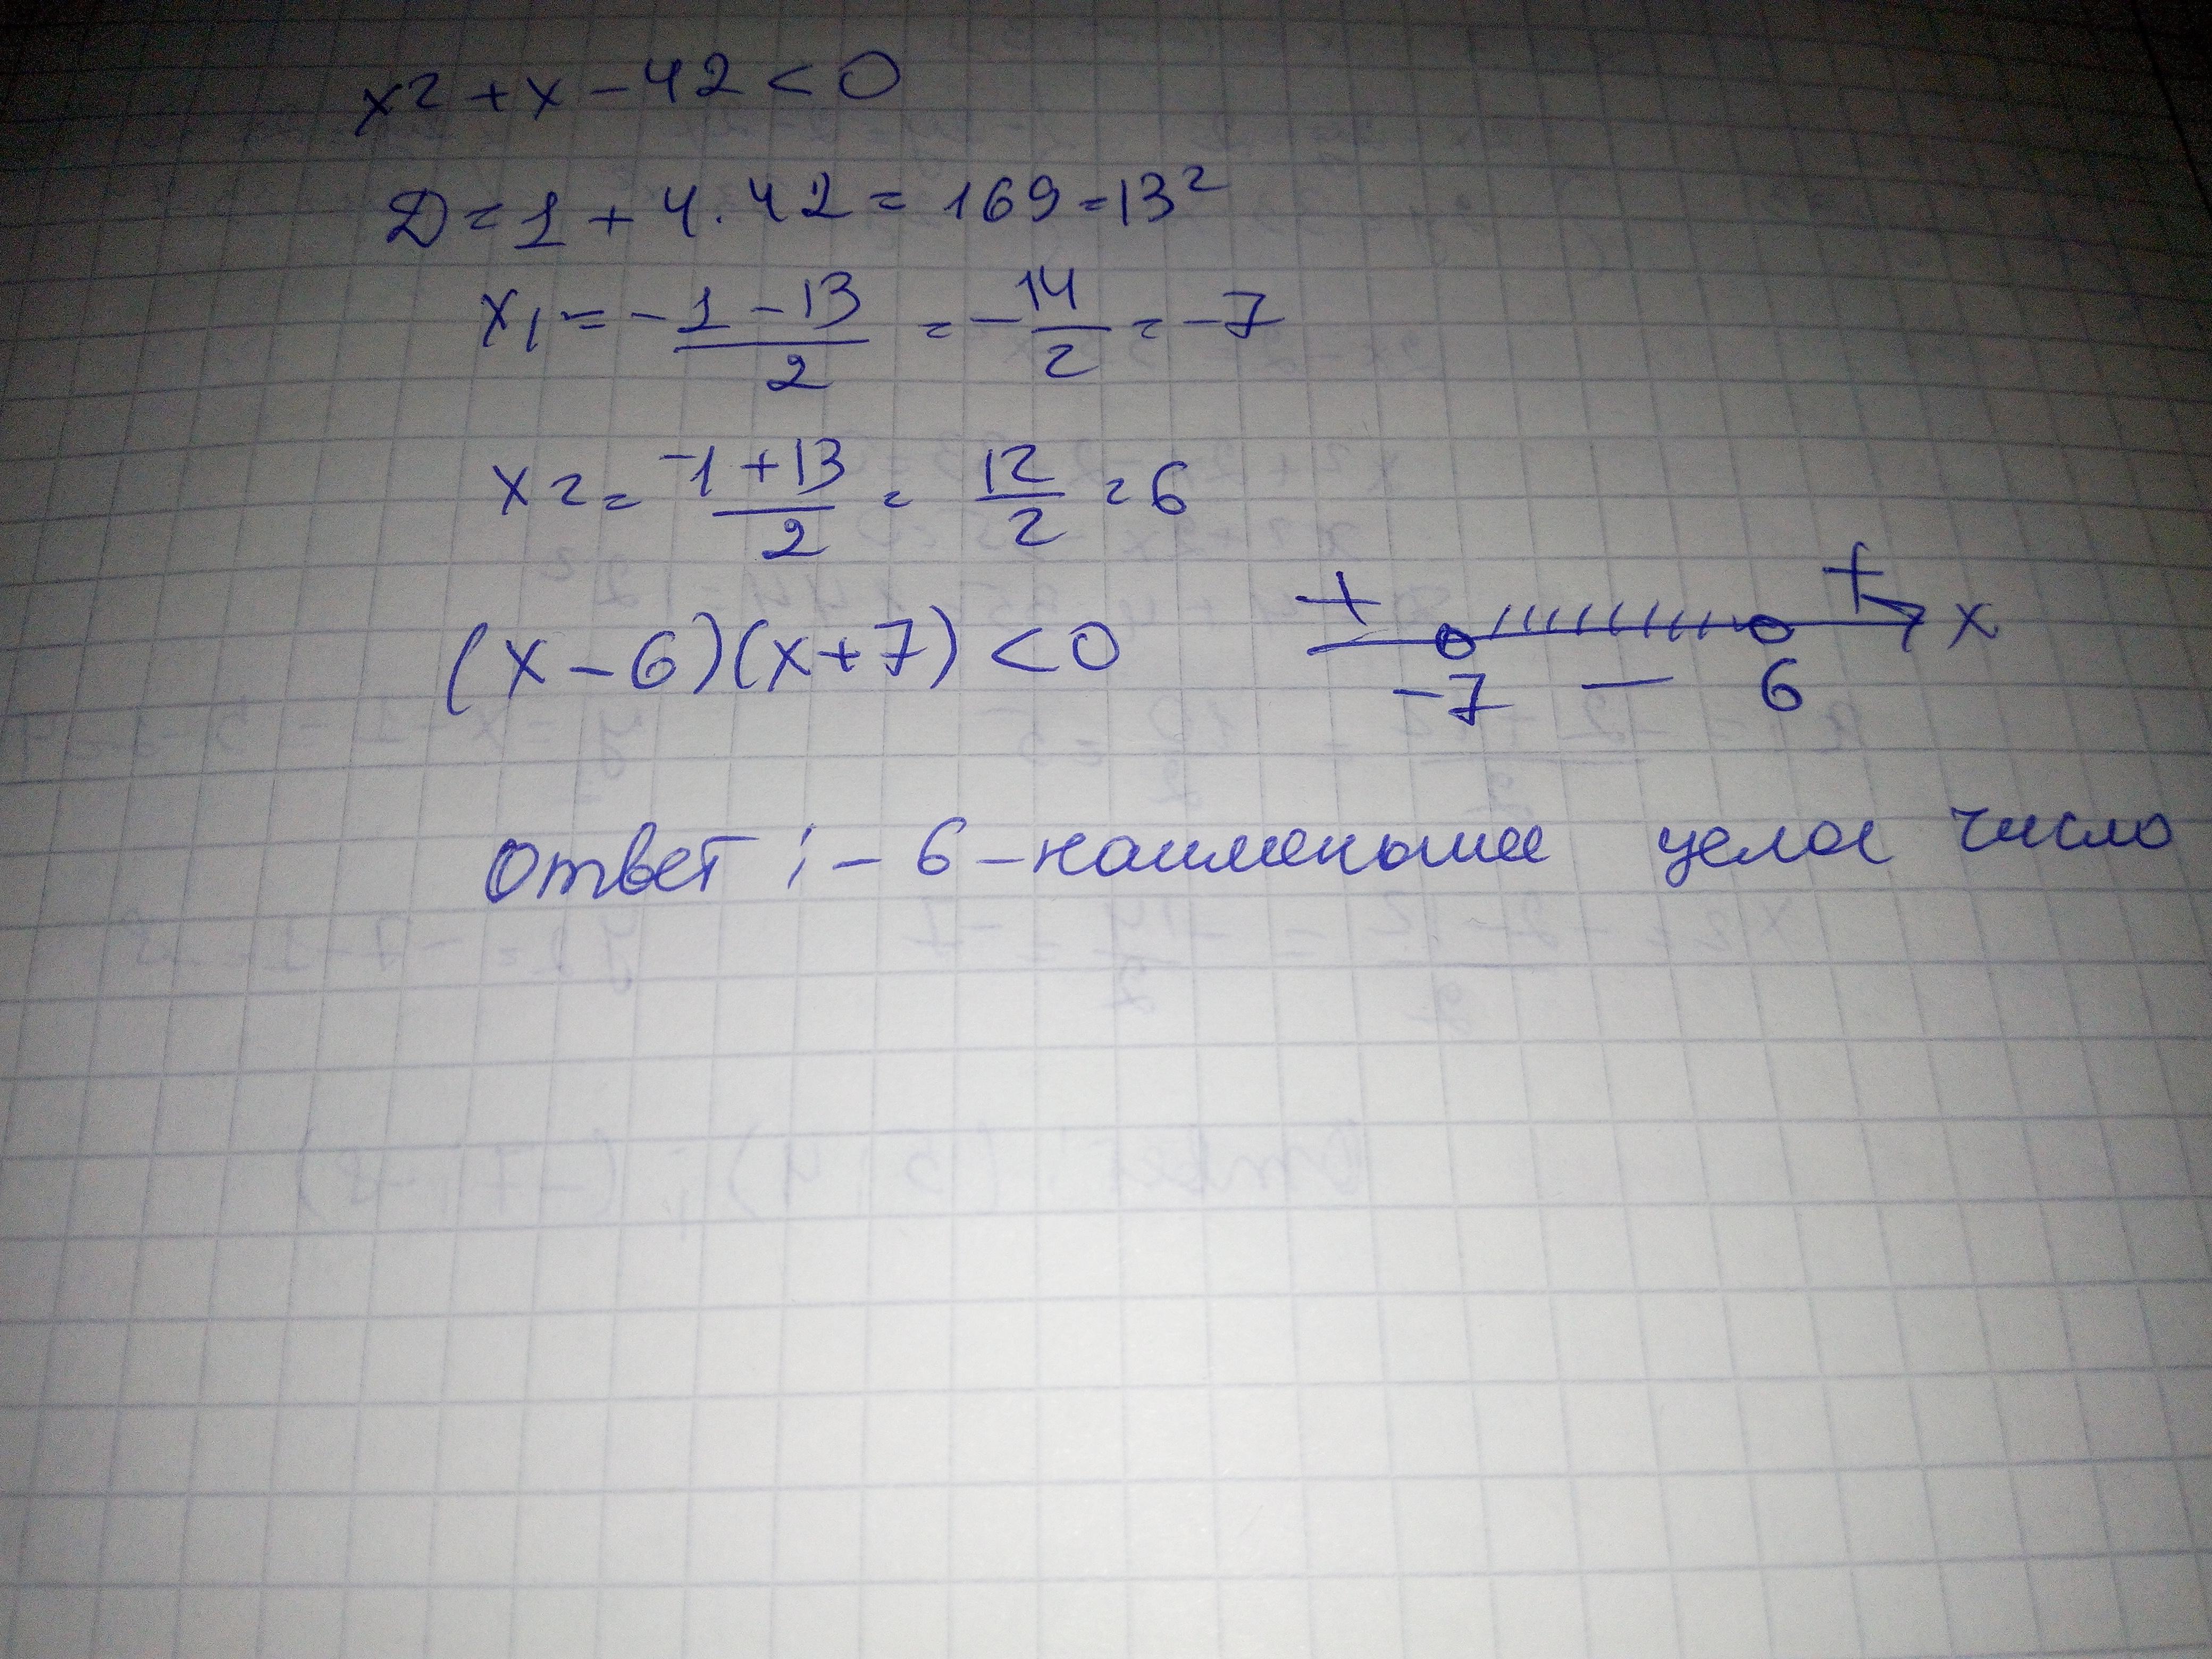 x² + x − 42 < 0
D = 1 + 4 · 42 = 169 = 13²
x₁ = −1 − 13 / 2 = −14/2 = −7
x₂ = −1 + 13 / 2 = 12/2 = 6
(x − 6)(x + 7) < 0
+ + x
−7 − 6
Ответ: −6 − наименьшее целое число